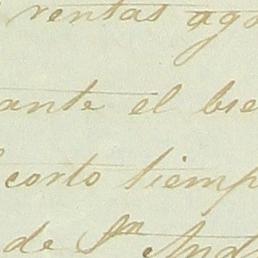 rentas ago
ante el bie
corto tiemp
de Sn And